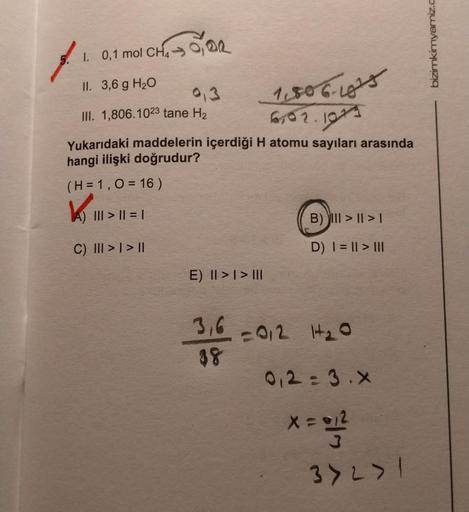 5. I. 0,1 mol CH₄ →
II. 3,6 g H₂O
0,3
III. 1,806.10²³ tane H₂
1,806.10²³
6,02.10²³
Yukarıdaki maddelerin içerdiği H atomu sayıları arasında
hangi ilişki doğrudur?
(H = 1, O = 16)
A) III > II = I
B) III > II > I
C) III > I > II
D) I = II > III
E) II > I > III
3,6 = 0,2 H₂O
18
0,2 = 3.x
x = 0,2
3
3 > 2 > 1
bizimkimyamiz.c